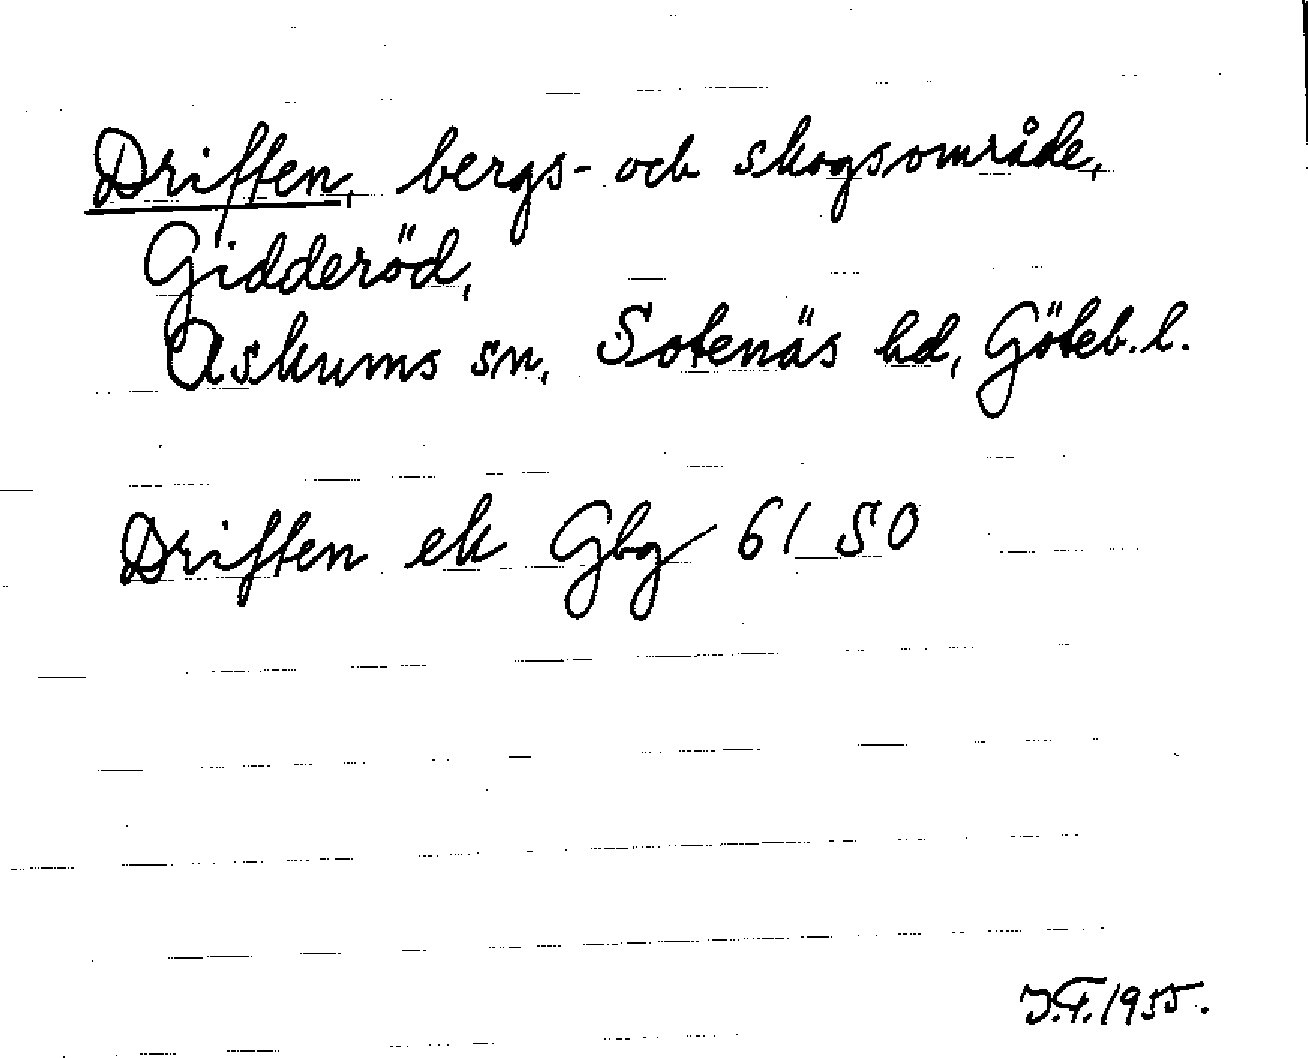 Driften, bergs- och skogsområde,
Gidderöd,
Askums sn, Sotenäs hd, Göteb. l.
Driften ek Gbg 61 SO
J.F. 1955.